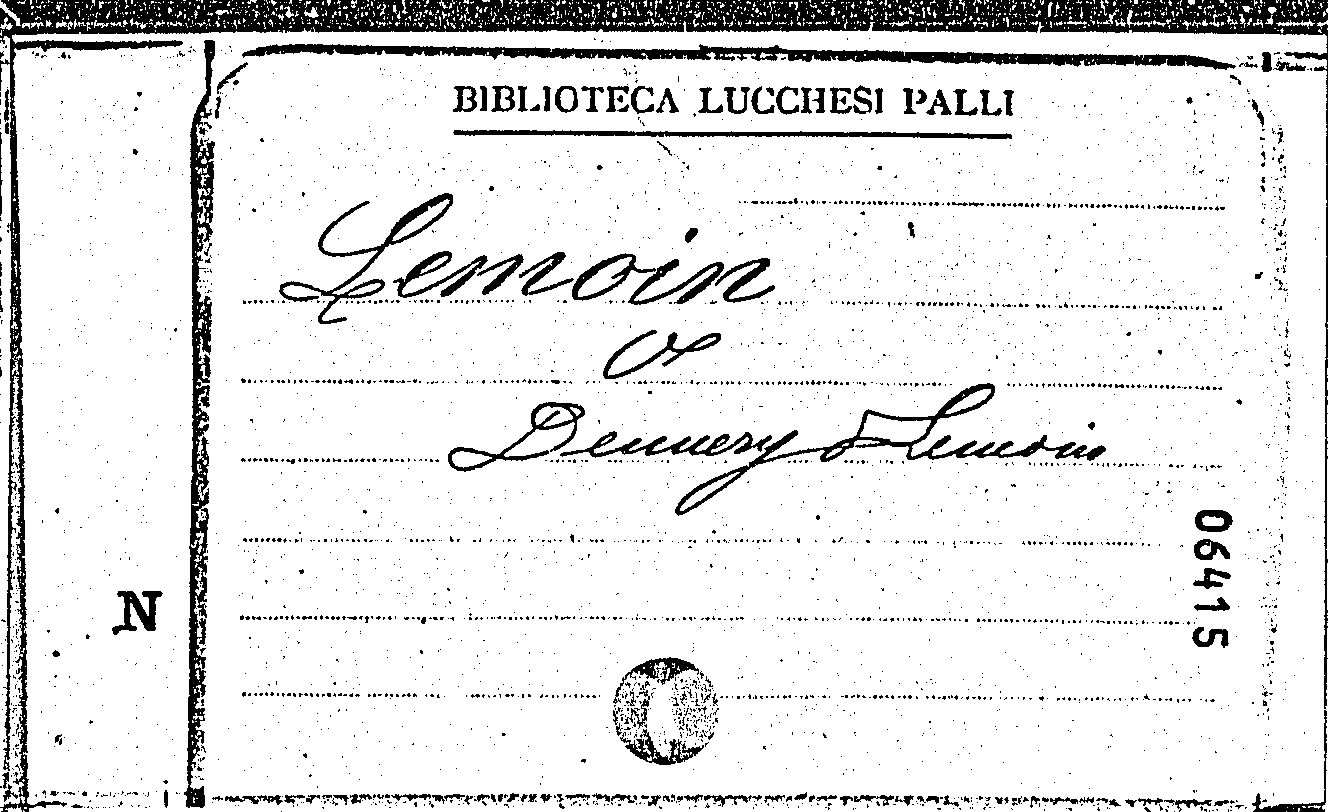 BIBLIOTECA LUCCHESI PALLI
Lemoin
V
Dennery & Lemoin
06415
N